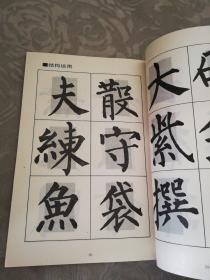 ■结构运用
夫 散
練 守
魚 袋
大
紫
撰